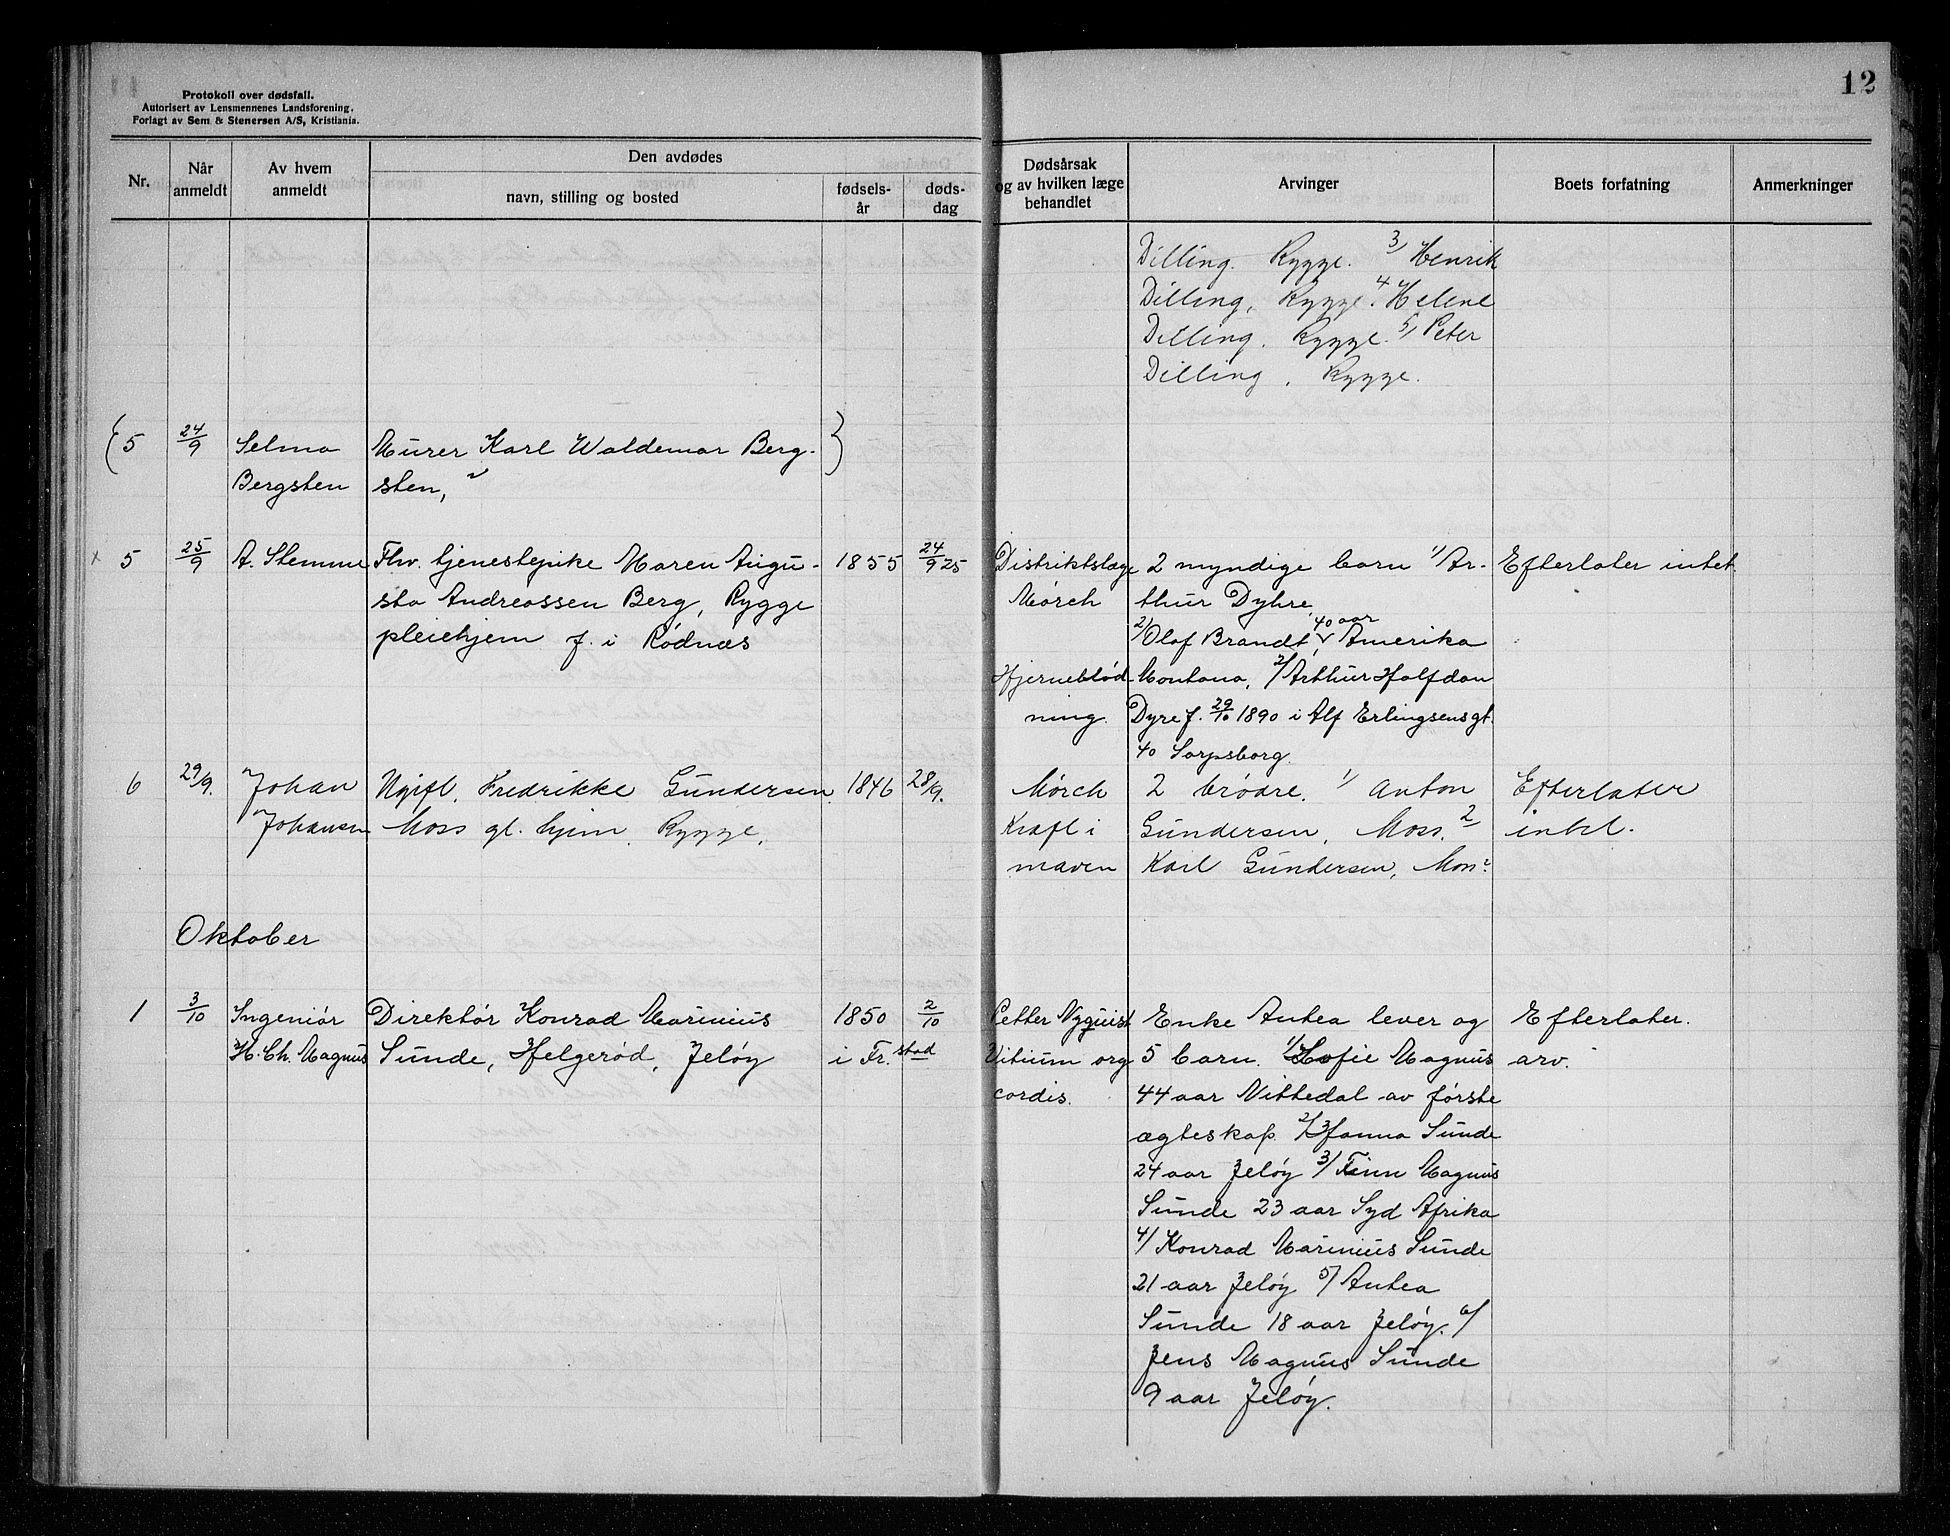 Protokoll over dødsfall.
Autorisert av Lensmennenes Landsforening.
Forlagt av Sem & Stenersen A/S, Kristiania.
12
Nr.
Når anmeldt
Av hvem anmeldt
Den avdødes
navn, stilling og bosted
fødsels-år
døds-dag
Dødsårsak og av hvilken læge behandlet
Arvinger
Boets forfatning
Anmerkninger
Dilling. Rygge. 3/ Henrik
Dilling, Rygge. 4 Helene
Dilling. Rygge. 5/ Peter
Dilling, Rygge.
(5 24/9 Selma Murer Karl Waldemar Berg- )
Bergsten sten,
x 5 25/9 A. Stemme Fhv. tjenestepike Maren Augu- 1855 24/9 25 Distriktslæge 2 myndige barn 1/ Ar- Efterlater intet
sta Andreassen Berg, Rygge Mørch thur Dyhre,
pleiehjem f. i Rødnæs 2/ Olof Brandt, 40 aar Amerika
Hjerneblød- Montana, 2/ Arthur Halfdan
ning. Dyre f. 29/10 1890 i Alf Erlingsens gt.
40 Sarpsborg.
6 29/9. Johan Ugift. Fredrikke Gundersen. 1846 28/9. Mørch 2 brødre. 1/ Anton Efterlater
Johansen Moss gl. hjem. Rygge. Kræft i Gundersen, Moss. 2 intet.
maven Karl Gundersen, Moss.
Oktober
1 3/10 Ingeniør Direktør Konrad Marinius 1850 2/10 Petter Nyquist Enke Antea lever og Efterlater.
H. Ch. Magnus Sunde, Helgerød, Jeløy i Fr. stad Vitium org 5 barn. 1/ Sofie Magnus arv.
cordis. 44 aar Nittedal av første
ægteskap. 2/ Hanna Sunde
24 aar Jeløy 3/ Finn Magnus
Sunde 23 aar Syd Afrika
4/ Konrad Marinius Sunde
21 aar Jeløy 5/ Antea
Sunde 18 aar Jeløy. 6/
Jens Magnus Sunde
9 aar Jeløy.